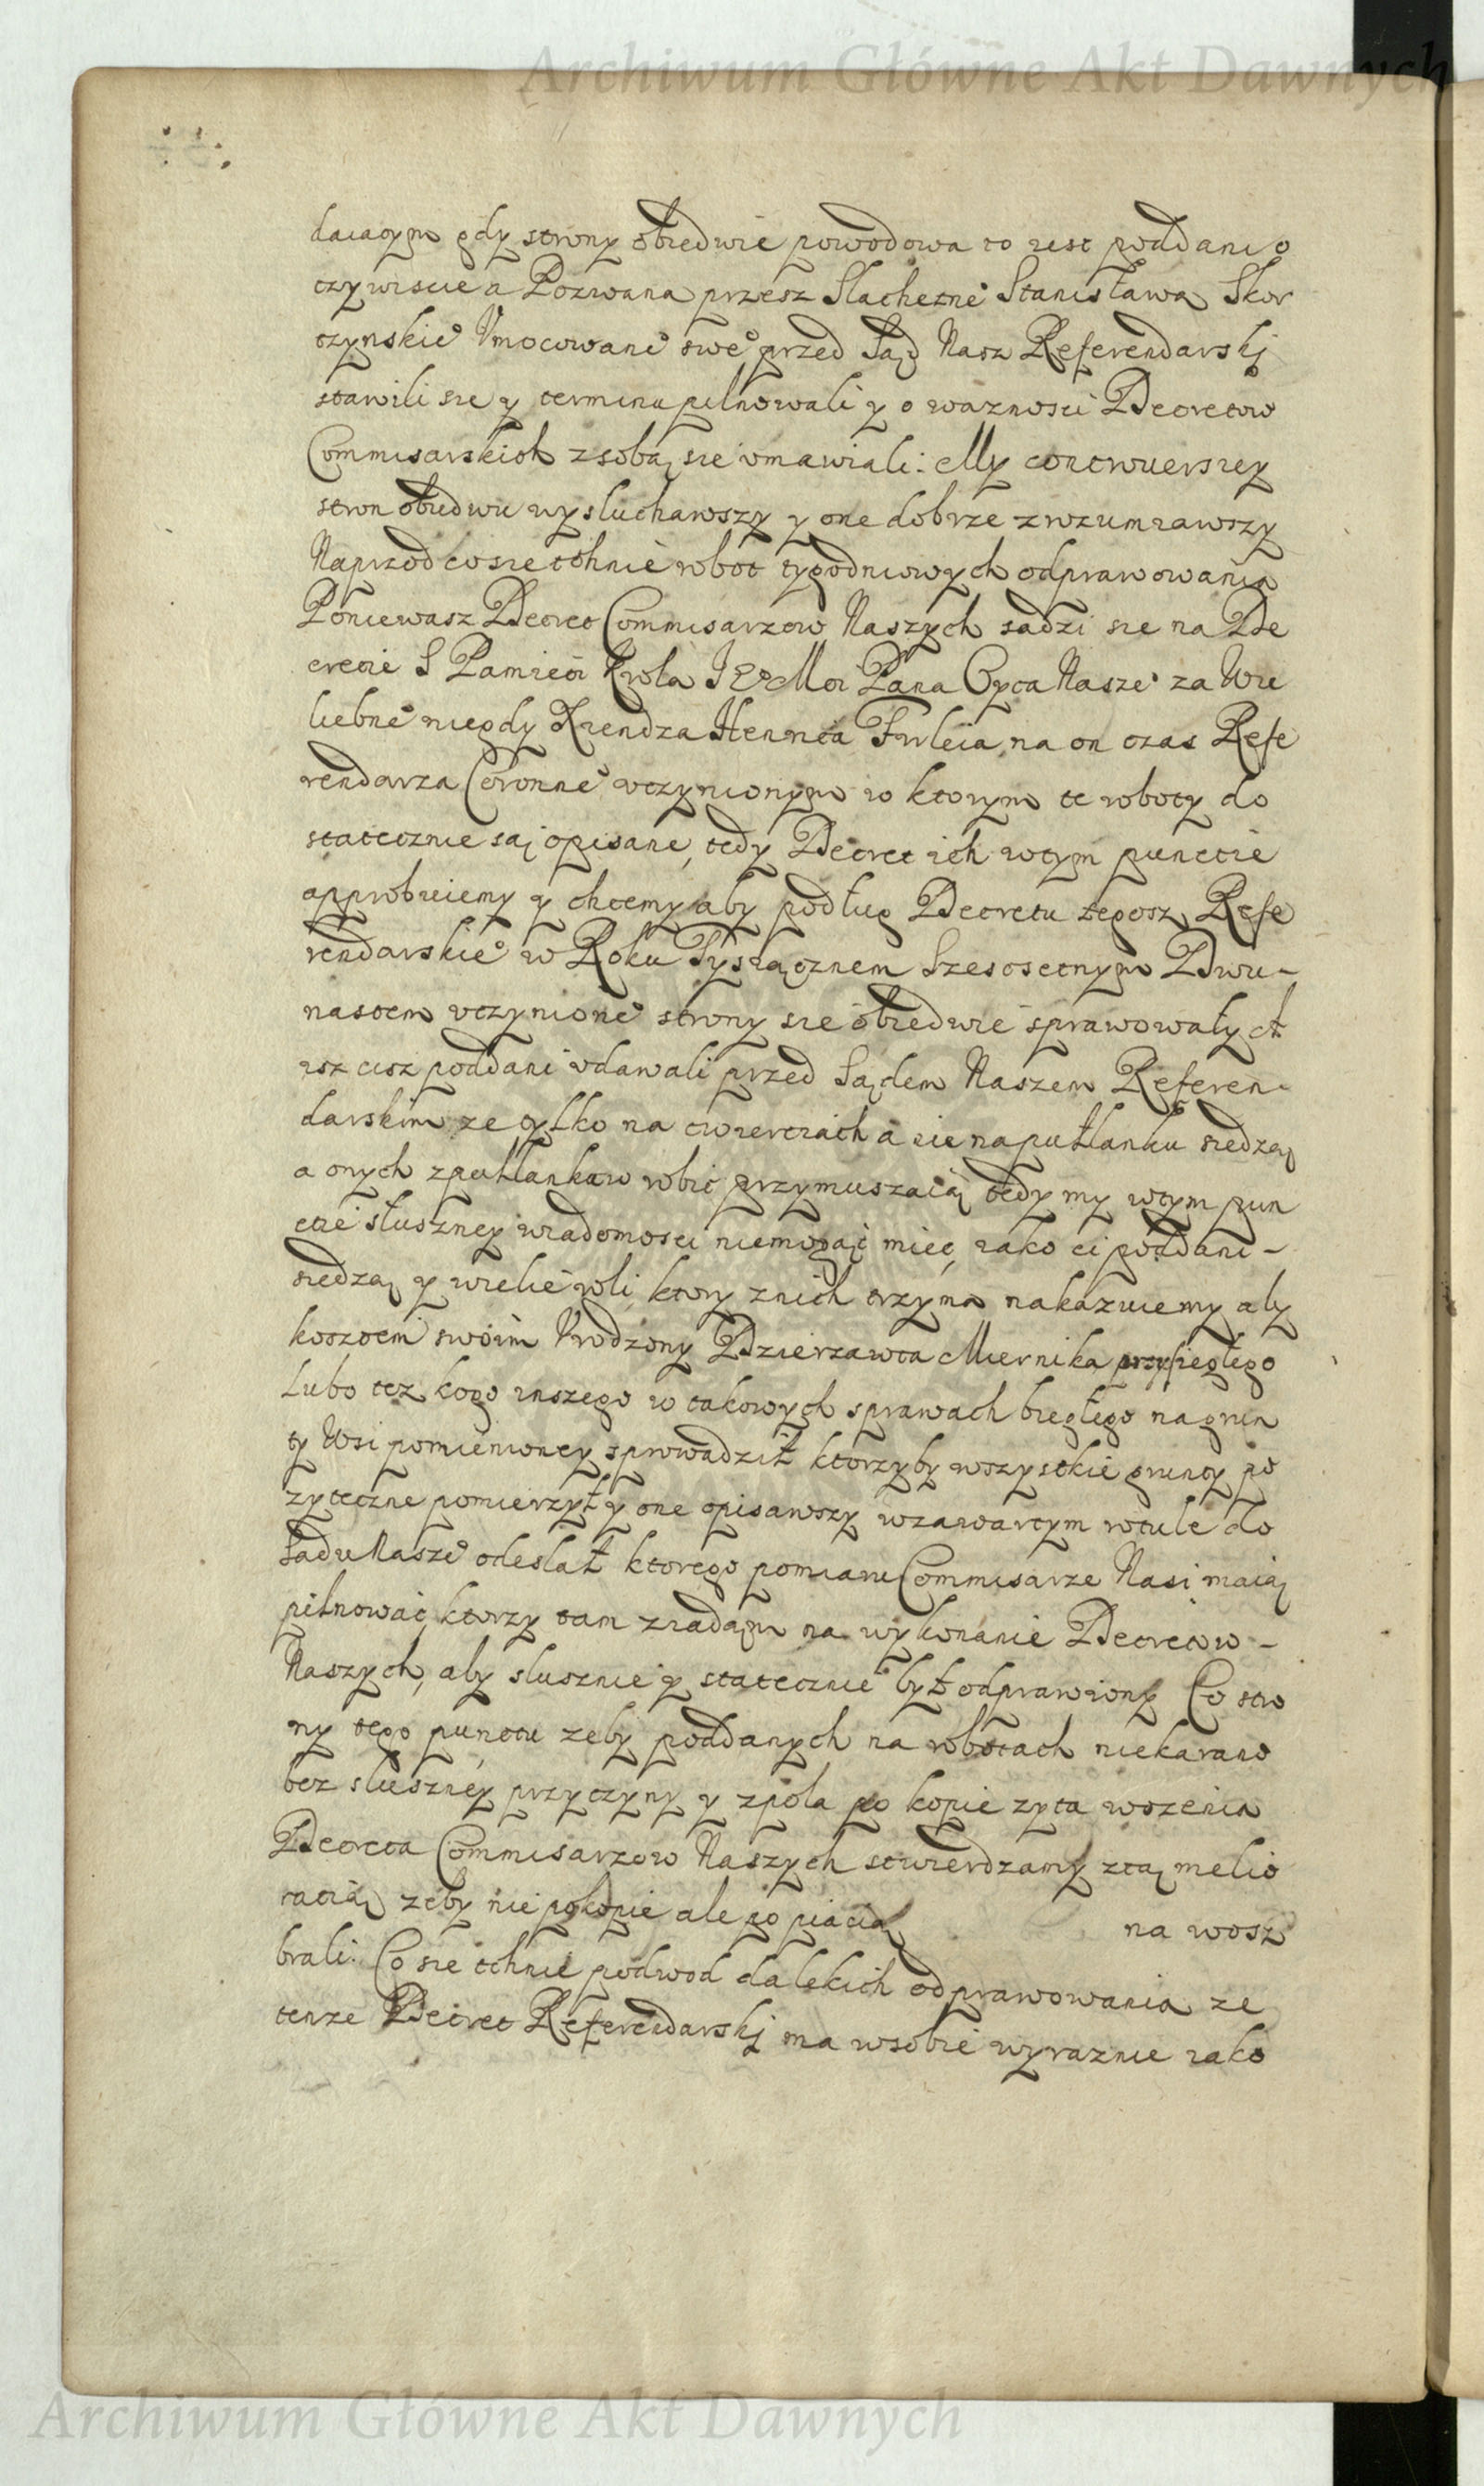 Archiwum Główne Akt Dawnych
daiącym gdy strony obiedwie powodowa to iest poddani o
czywiscie a Pozwana przesz Slachetne° Stanisława Skor
czynskie° Vmocowane° swe° przed Sąd Nasz Referendarskj
stawili sie y terminu pilnowali y o waznosci Decretow
Commisarskich z sobą sie vmawiali: My controuersiey
stron obudwu wysluchawszy y one dobrze zrozumiawszy
Naprzod co sie tchnie robot tygodniowych odprawowania
Poniewasz Decret Commisarzow Naszych sadzi sie na De
crecie S Pamieci Krola JE° Mci Pana Oyca Nasze° za Wie
liebne° niegdy Xiendza Henrica Firleia na on czas Refe
rendarza Coronne° vczynionym w ktorym te roboty do
statecznie są opisane, tedy Decret ich wtym punctie
approbuiemy y chcemy aby podług Decretu tegosz Refe
rendarskie° w Roku Tysiącznem Szescsetnym Dwu-
nastem vczynione° strony sie obiedwie sprawowały A
isz cisz poddani vdawali przed Sądem Naszem Referen-
darskim ze tylko na cwierciach a nie na pułlanku siedzą
a onych z pułlankow robic przymuszaią tedy my wtym pun
ctie słuszney wiadomosci niemogąc miec, iako ci poddani -
siedzą y wielie roli ktory znich trzyma nakazuiemy aby
kosztem swoim Vrodzony Dzierzawca Miernika przysięgłego
Lubo tez kogo inszego w takowych sprawach biegłego na grun
ty Wsi pomienioney sprowadził ktorzyby wszystkie grunty po
zyteczne pomierzył y one opisawszy w zawartym rotule do
Sadu Nasze° odeslał ktorego pomiaru Commisarze Nasi maią
pilnowac, ktorzy tam ziadąm na wykonanie Decretow -
Naszych, aby slusznie y statecznie był odprawiony Co stro
ny tego punctu zeby poddanych na robotach niekarano
bez sluszney przyczyny y zpola po kopie zyta wozenia
Decreta Commisarzow Naszych stwierdzamy ztą melio
racią zeby nie po kopie ale po piacią na wosz
brali. Co sie tchnie podwod dalekich odprawowania ze
tenze Decret Referendarskj ma wsobie wyraznie iako
Archiwum Główne Akt Dawnych